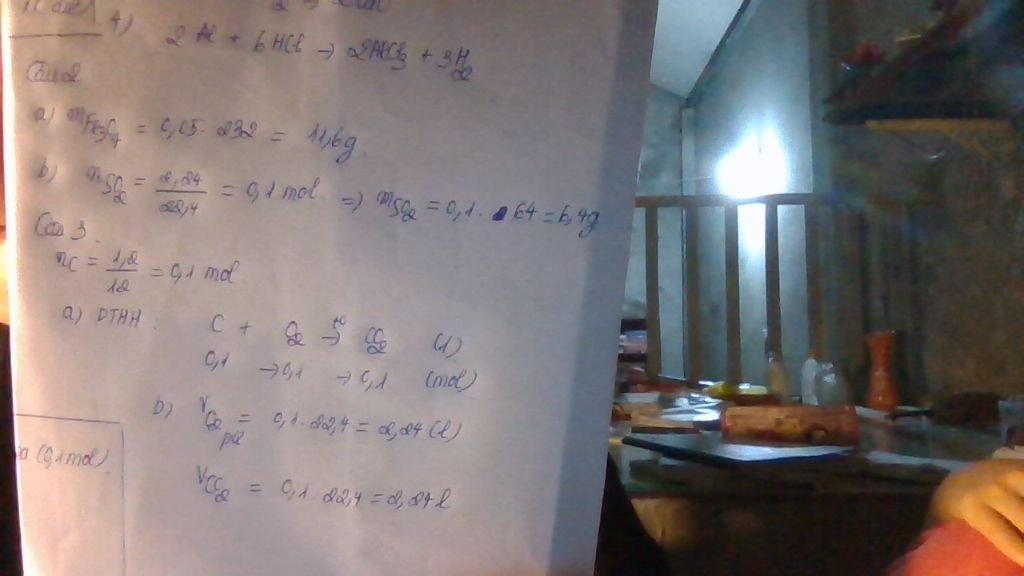 4) 2Al + 6HCl → 2AlCl3 + 3H2
Câu 2
a) mFe3O4 = 0,05. 232 = 11,6g.
b) nSO2 = 2,24/22,4 = 0,1 mol. => mSO2 = 0,1. 64 = 6,4g
Câu 3.
nC = 1,2/12 = 0,1 mol
a) PTHH: C + O2 →t° CO2 (1)
0,1 → 0,1 → 0,1 (mol)
b) VO2 pư = 0,1. 22,4 = 2,24 (l)
(0,1 mol).
VCO2 = 0,1. 22,4 = 2,24 l